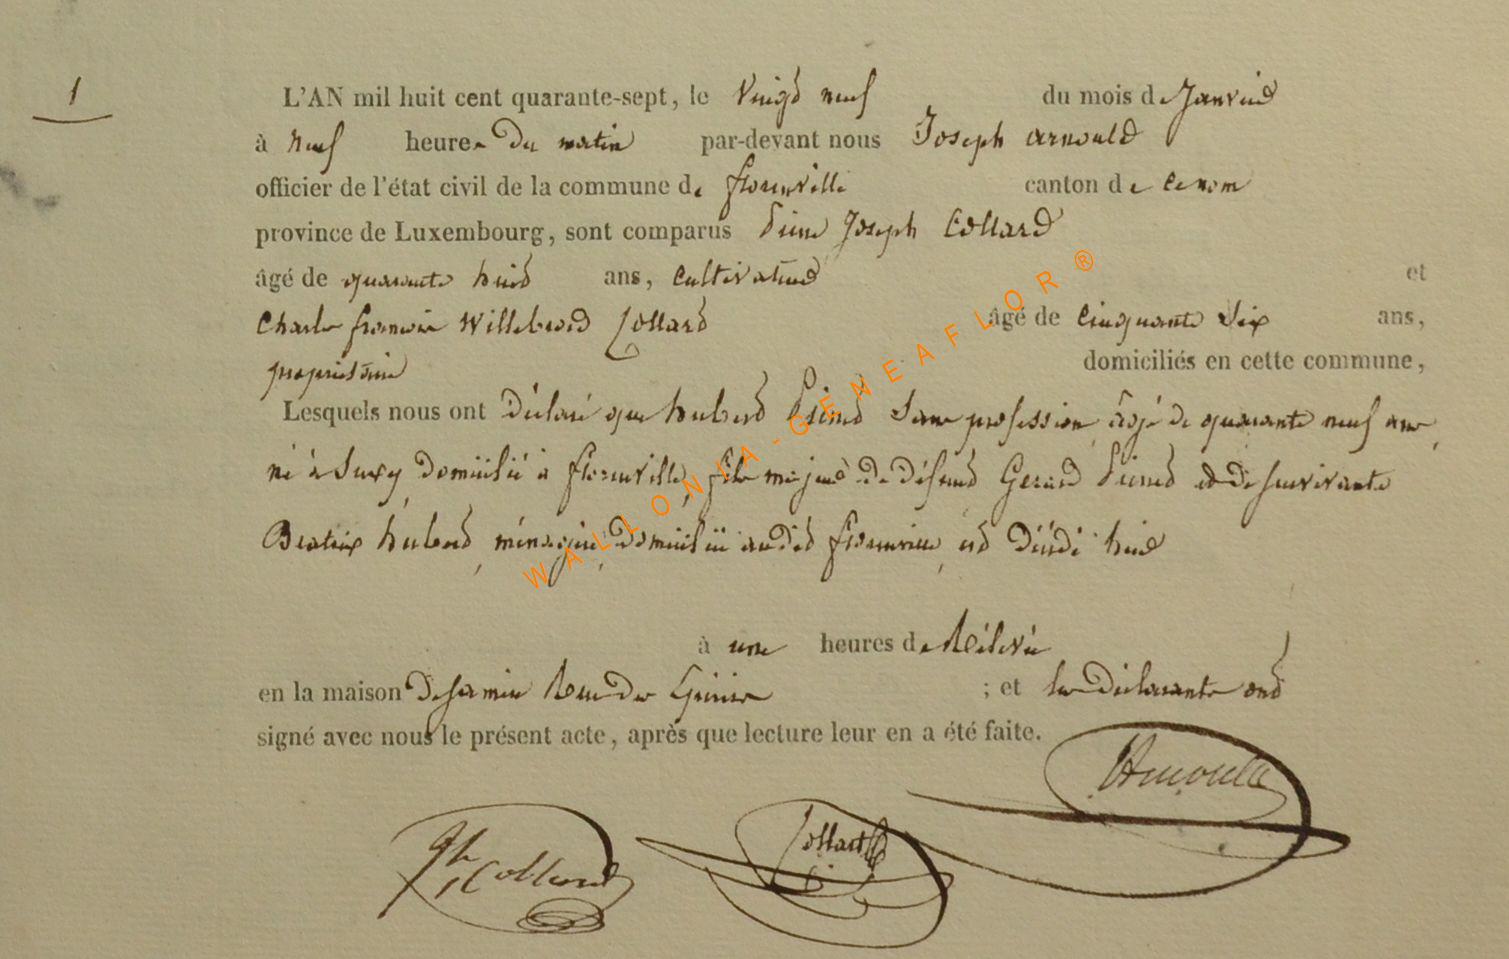 1
L'AN mil huit cent quarante-sept, le vingt neuf du mois de Janvier
à neuf heures du matin par-devant nous Joseph Arnould
officier de l'état civil de la commune de florenville canton de ce nom
province de Luxembourg, sont comparus Joseph Collard
âgé de quarante huit ans, cultivateur et
Charles françois Willebrord Collard âgé de cinquante six ans,
propriétaire domiciliés en cette commune,
Lesquels nous ont déclaré que hubert Pierret Sans profession, âgé de quarante neuf ans,
né à Suxy, domicilié à florenville, fils majeur de défunt Gerard Pierret et de survivante
Beatrix hubert, ménagère, domiciliée audit florenville, est décédé hier
à une heures de Relevée
en la maison rue des ; et les déclarants ont
signé avec nous le présent acte, après que lecture leur en a été faite.
Arnould
Collard
Collard
WALLONIA-GENEAFLOR®